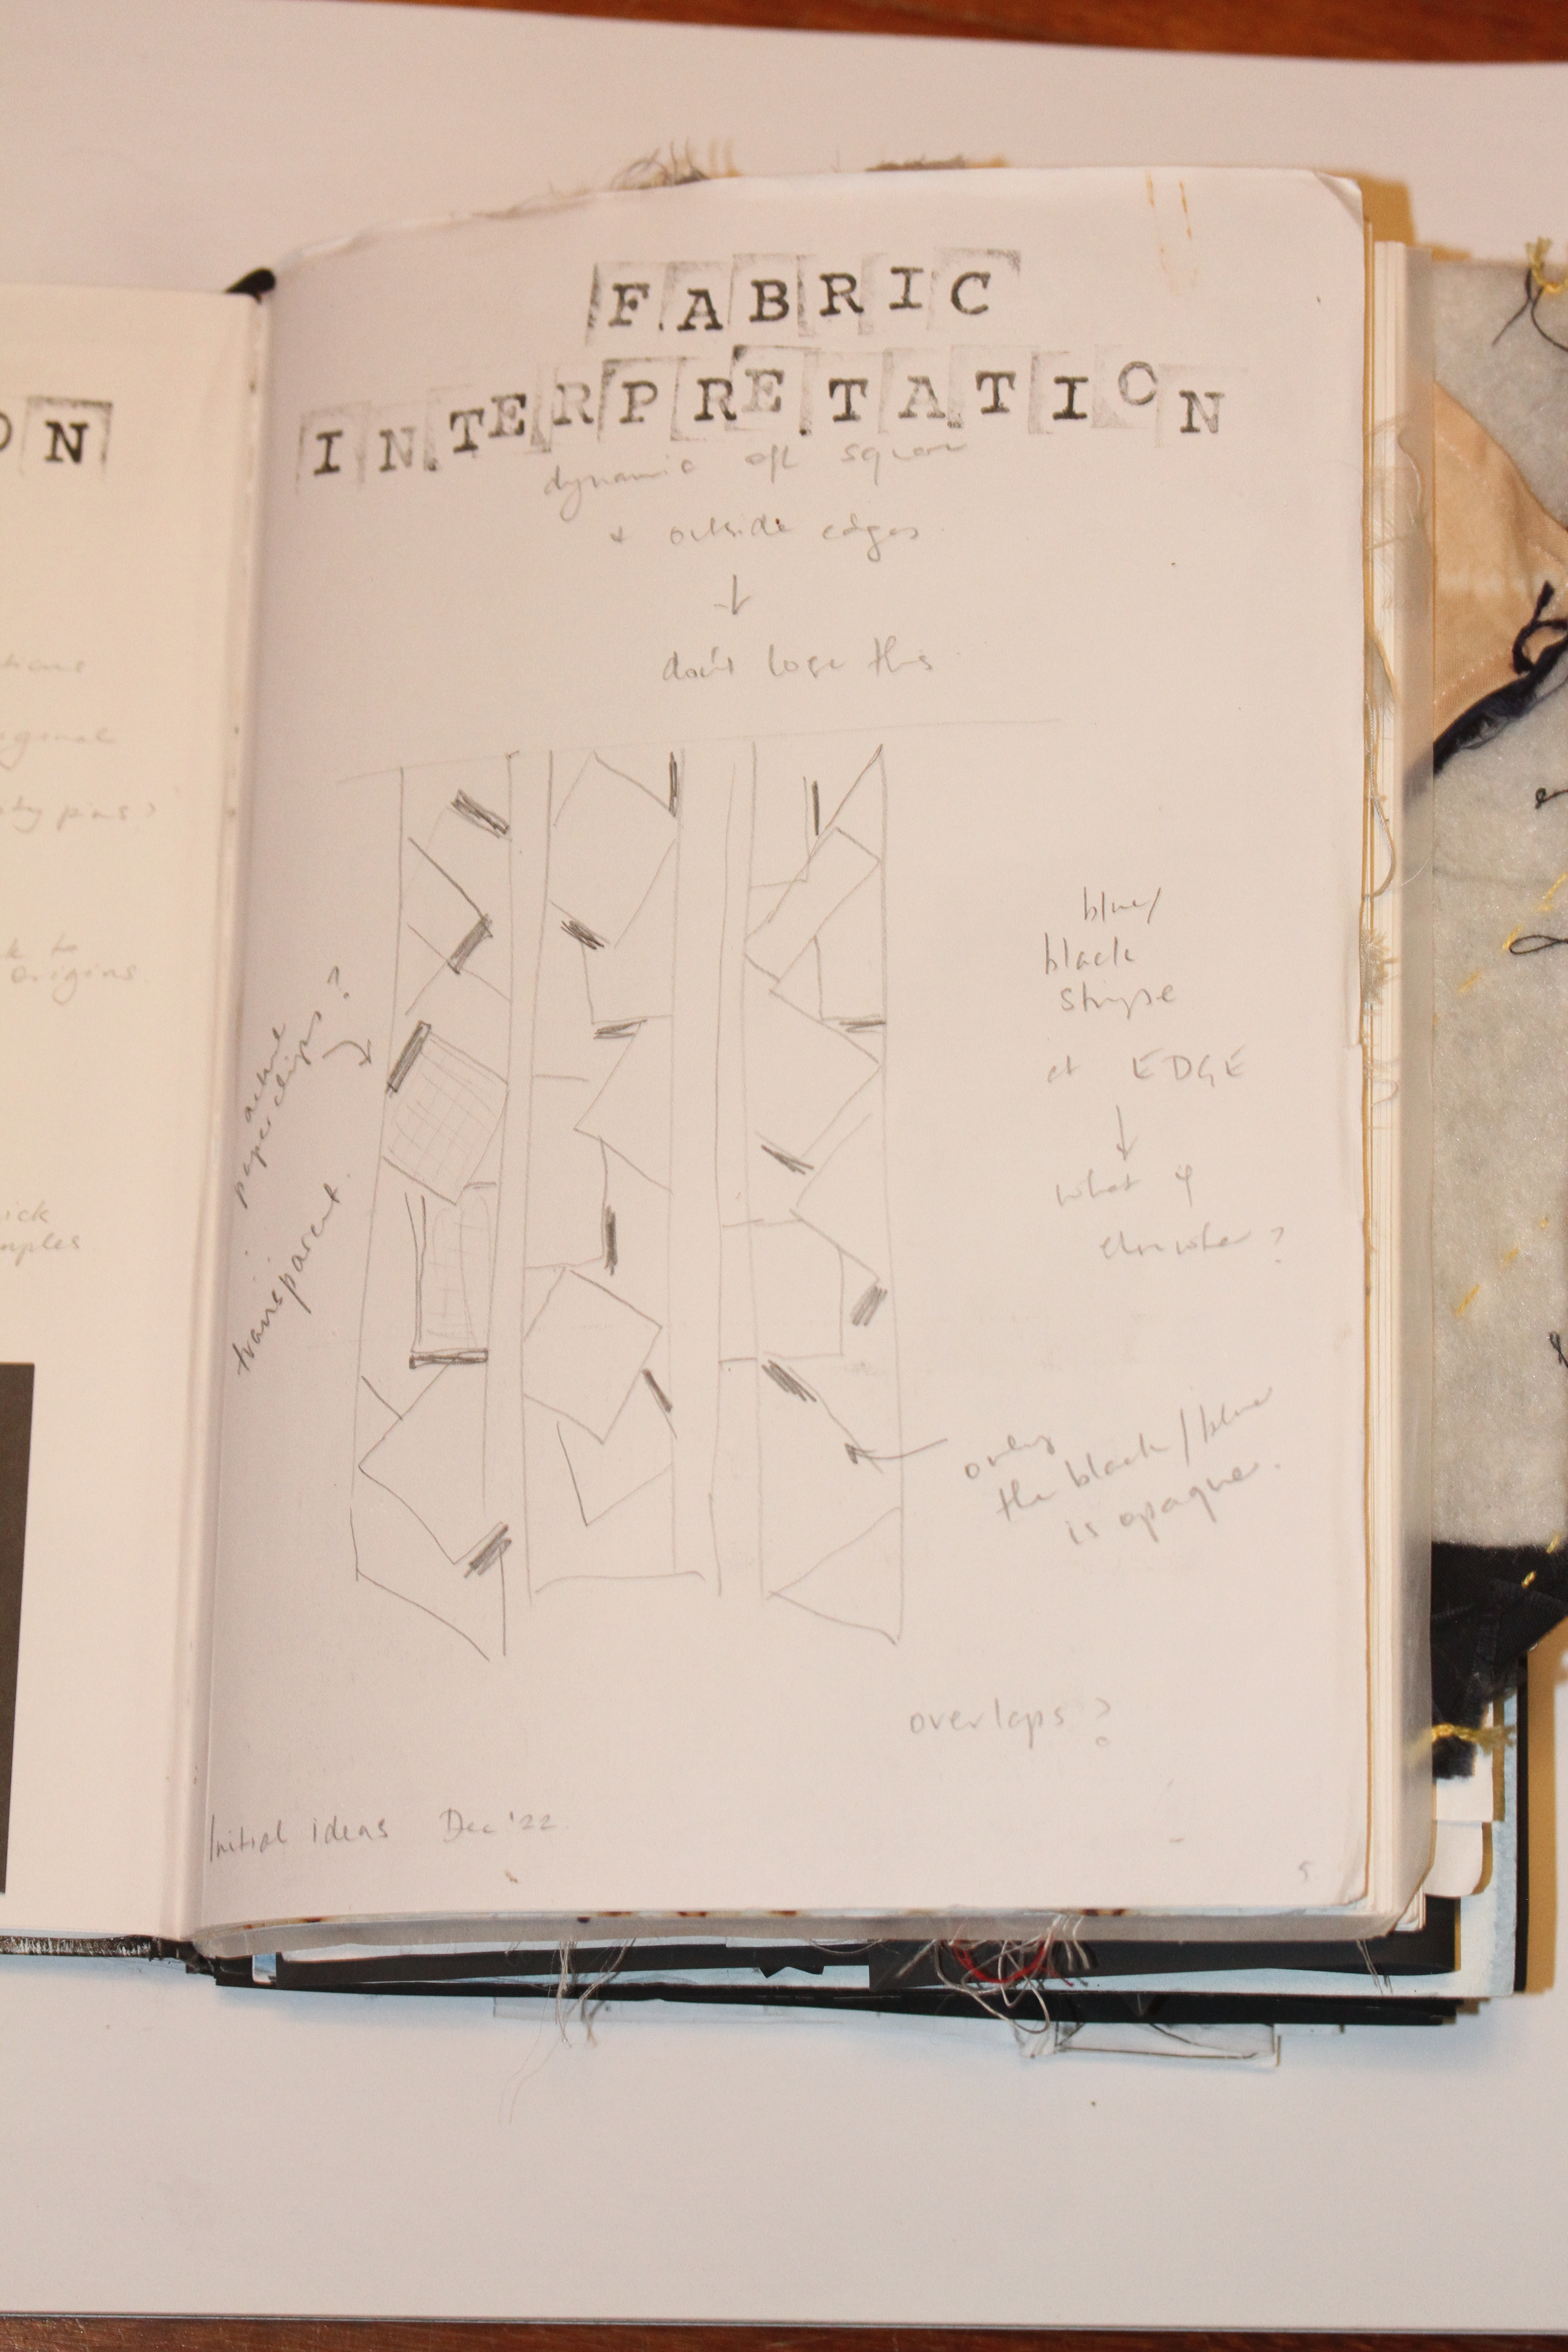 ON
tions
iginal
ty pins?
k to
origins.
ick
mples
FABRIC
INTERPRETATION
dynamic off square
+ outside edges
don't lose this
actual
paperclips?
transparent.
blue/
black
stripe
at EDGE
what if
elsewhere?
only
the black/blue
is opaque.
overlaps?
Initial ideas Dec '22
5